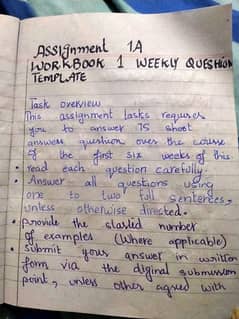 Assignment 1A
WORKBOOK 1 WEEKLY QUESHON
TEMPLATE
Task overview
This assignment tasks requires
you to answer 75 shoot
answers question over the course
of the first six weeks of this
read each question carefully.
• Answer all questions using
one to two full sentences,
unless otherwise directed.
• provide the slated number
of examples (where applicable)
• submit your answer in written
form via the diginal submission
point, unless other agreed with